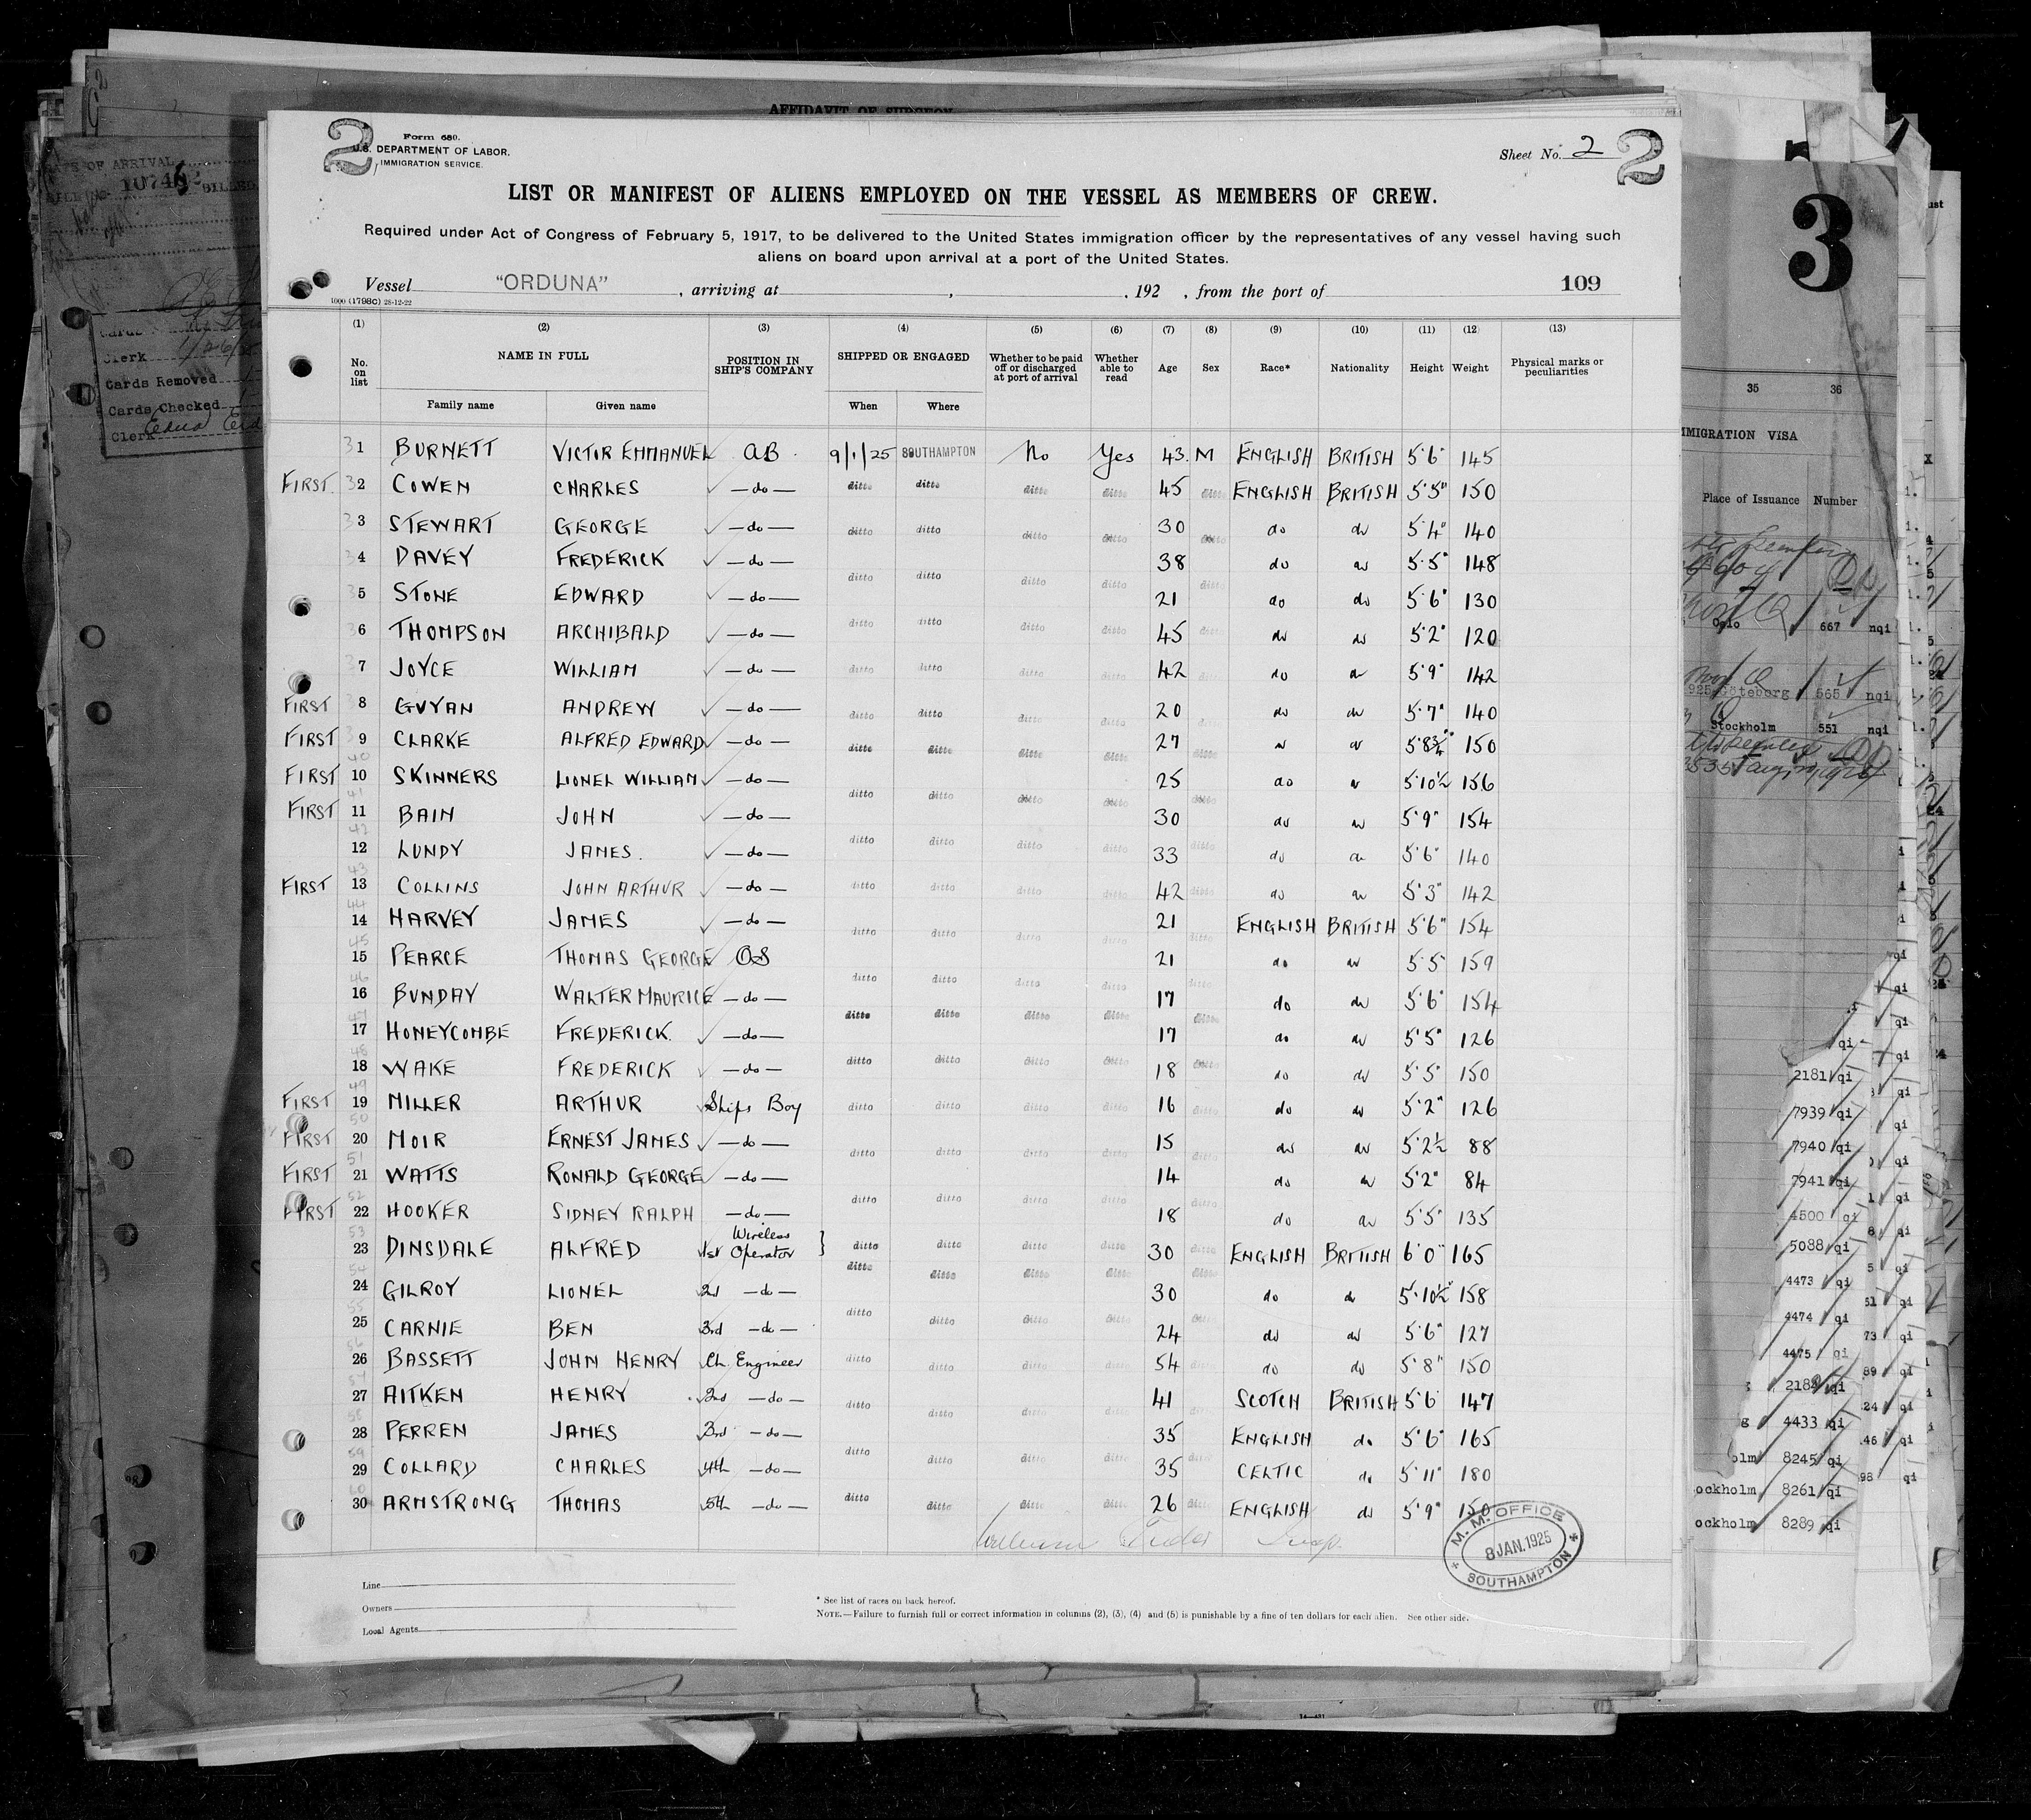 AFFIDAVIT OF SURGEON
2
Form 680.
U.S. DEPARTMENT OF LABOR.
IMMIGRATION SERVICE.
Sheet No. 2
2
LIST OR MANIFEST OF ALIENS EMPLOYED ON THE VESSEL AS MEMBERS OF CREW.
Required under Act of Congress of February 5, 1917, to be delivered to the United States immigration officer by the representatives of any vessel having such
aliens on board upon arrival at a port of the United States.
Vessel "ORDUNA", arriving at , , 192 , from the port of 109
1000 (1798c) 28-12-22
(1) (2) (3) (4) (5) (6) (7) (8) (9) (10) (11) (12) (13)
No. on list NAME IN FULL POSITION IN SHIP'S COMPANY SHIPPED OR ENGAGED Whether to be paid off or discharged at port of arrival Whether able to read Age Sex Race* Nationality Height Weight Physical marks or peculiarities
Family name Given name When Where
1 BURNETT VICTOR EMMANUEL AB 9/1/25 SOUTHAMPTON No Yes 43 M ENGLISH BRITISH 5'6" 145
FIRST 2 COWEN CHARLES —do— ditto ditto ditto ditto 45 ditto ENGLISH BRITISH 5'5" 150
3 STEWART GEORGE —do— ditto ditto ditto ditto 30 ditto do do 5'4" 140
4 DAVEY FREDERICK —do— ditto ditto ditto ditto 38 ditto do do 5'5" 148
5 STONE EDWARD —do— 21 do do 5'6" 130
6 THOMPSON ARCHIBALD —do— ditto ditto ditto ditto 45 ditto do do 5'2" 120
7 JOYCE WILLIAM —do— ditto ditto ditto ditto 42 ditto do do 5'9" 142
FIRST 8 GUYAN ANDREW —do— ditto ditto ditto ditto 20 ditto do do 5'7" 140
FIRST 9 CLARKE ALFRED EDWARD —do— ditto ditto ditto ditto 27 ditto do do 5'8¾" 150
FIRST 10 SKINNERS LIONEL WILLIAM —do— ditto ditto ditto ditto 25 ditto do do 5'10½ 156
FIRST 11 BAIN JOHN —do— 30 do do 5'9" 154
12 LUNDY JAMES. —do— ditto ditto ditto ditto 33 ditto do do 5'6" 140
FIRST 13 COLLINS JOHN ARTHUR —do— ditto ditto ditto ditto 42 ditto do do 5'3" 142
14 HARVEY JAMES —do— ditto ditto ditto ditto 21 ditto ENGLISH BRITISH 5'6" 154
15 PEARCE THOMAS GEORGE OS ditto ditto ditto ditto 21 ditto do do 5'5" 159
16 BUNDAY WALTER MAURICE —do— ditto ditto ditto ditto 17 ditto do do 5'6" 154
17 HONEYCOMBE FREDERICK. —do— 17 do do 5'5" 126
18 WAKE FREDERICK —do— ditto ditto ditto ditto 18 ditto do do 5'5" 150
FIRST 19 MILLER ARTHUR Ships Boy ditto ditto ditto ditto 16 ditto do do 5'2" 126
FIRST 20 MOIR ERNEST JAMES —do— ditto ditto ditto ditto 15 ditto do do 5'2½ 88
FIRST 21 WATTS RONALD GEORGE —do— 14 do do 5'2" 84
FIRST 22 HOOKER SIDNEY RALPH —do— ditto ditto ditto ditto 18 ditto do do 5'5" 135
23 DINSDALE ALFRED 1st Wireless Operator ditto ditto ditto ditto 30 ditto ENGLISH BRITISH 6'0" 165
24 GILROY LIONEL 2nd —do— ditto ditto ditto ditto 30 ditto do do 5'10½" 158
25 CARNIE BEN 3rd —do— ditto ditto ditto ditto 24 ditto do do 5'6" 127
26 BASSETT JOHN HENRY Ch. Engineer ditto ditto ditto ditto 54 ditto do do 5'8" 150
27 AITKEN HENRY 2nd —do— ditto ditto ditto ditto 41 SCOTCH BRITISH 5'6 147
28 PERREN JAMES 3rd —do— 35 ENGLISH do 5'6" 165
29 COLLARD CHARLES 4th —do— ditto ditto ditto ditto 35 ditto CELTIC do 5'11" 180
30 ARMSTRONG THOMAS 5th —do— ditto ditto ditto ditto 26 ditto ENGLISH do 5'9" 150
M. M. OFFICE
8 JAN. 1925
SOUTHAMPTON
Line
Owners
Local Agents
* See list of races on back hereof.
NOTE.—Failure to furnish full or correct information in columns (2), (3), (4) and (5) is punishable by a fine of ten dollars for each alien. See other side.
OF ARRIVAL
Clerk
Cards Removed
Cards Checked
Clerk
3
35 36
IMMIGRATION VISA
Place of Issuance Number
Oslo 667 nqi
1925 Göteborg 565 nqi
Stockholm 551 nqi
2181 qi
7939 qi
7940 qi
7941 qi
4500 qi
5088 qi
4473 qi
4474 qi
4475 qi
4433 qi
8245 qi
8261 qi
8289 qi